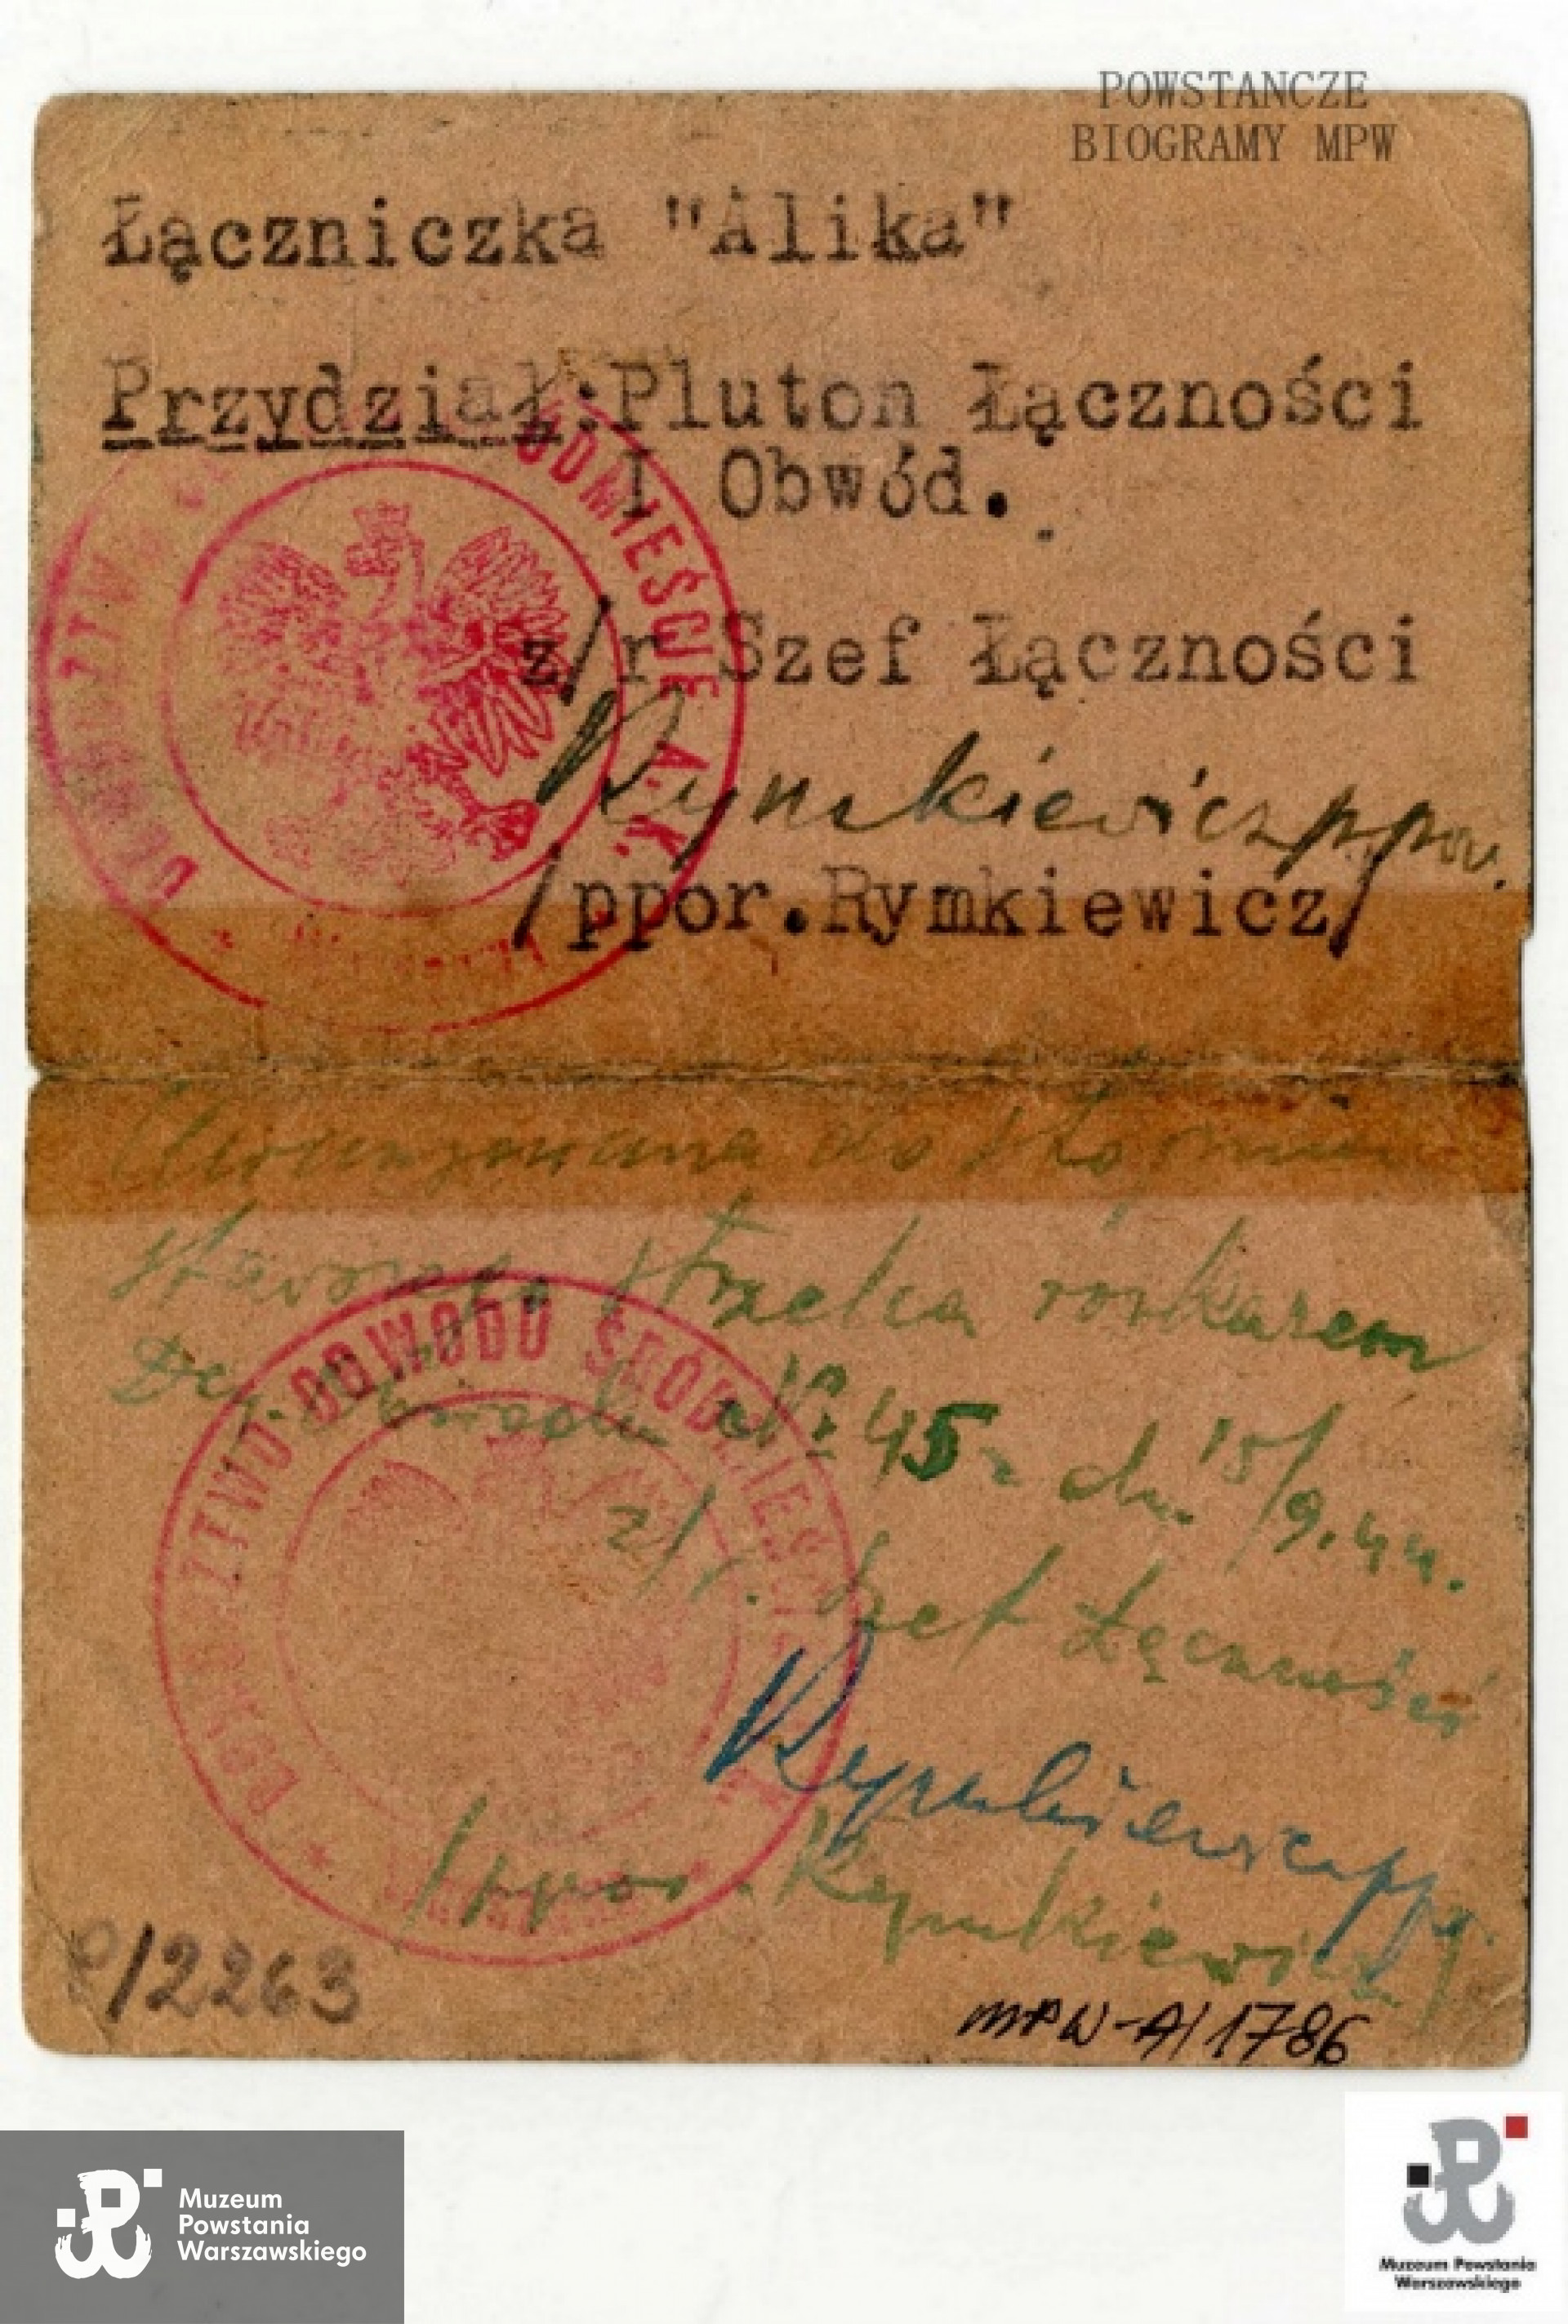 POWSTANCZE
BIOGRAMY MPW
Łączniczka "Alika"
Przydział:Pluton Łączności
I Obwód.
z/r Szef Łączności
Rymkiewicz ppor.
/ppor.Rymkiewicz/
ŚRÓDMIEŚCIE A.K.
Awanzowana do stopnia
starszego strzelca rozkazem
Dcy. Obwodu Nr 45 z dn. 15/9.44.
z/r. Szef Łączności
Rymkiewicz ppor.
/ppor. Rymkiewicz/
DOWÓDZTWO OBWODU ŚRÓDMIEŚCIE
P/2263
MPW-A/1786
Muzeum
Powstania
Warszawskiego
Muzeum Powstania
Warszawskiego